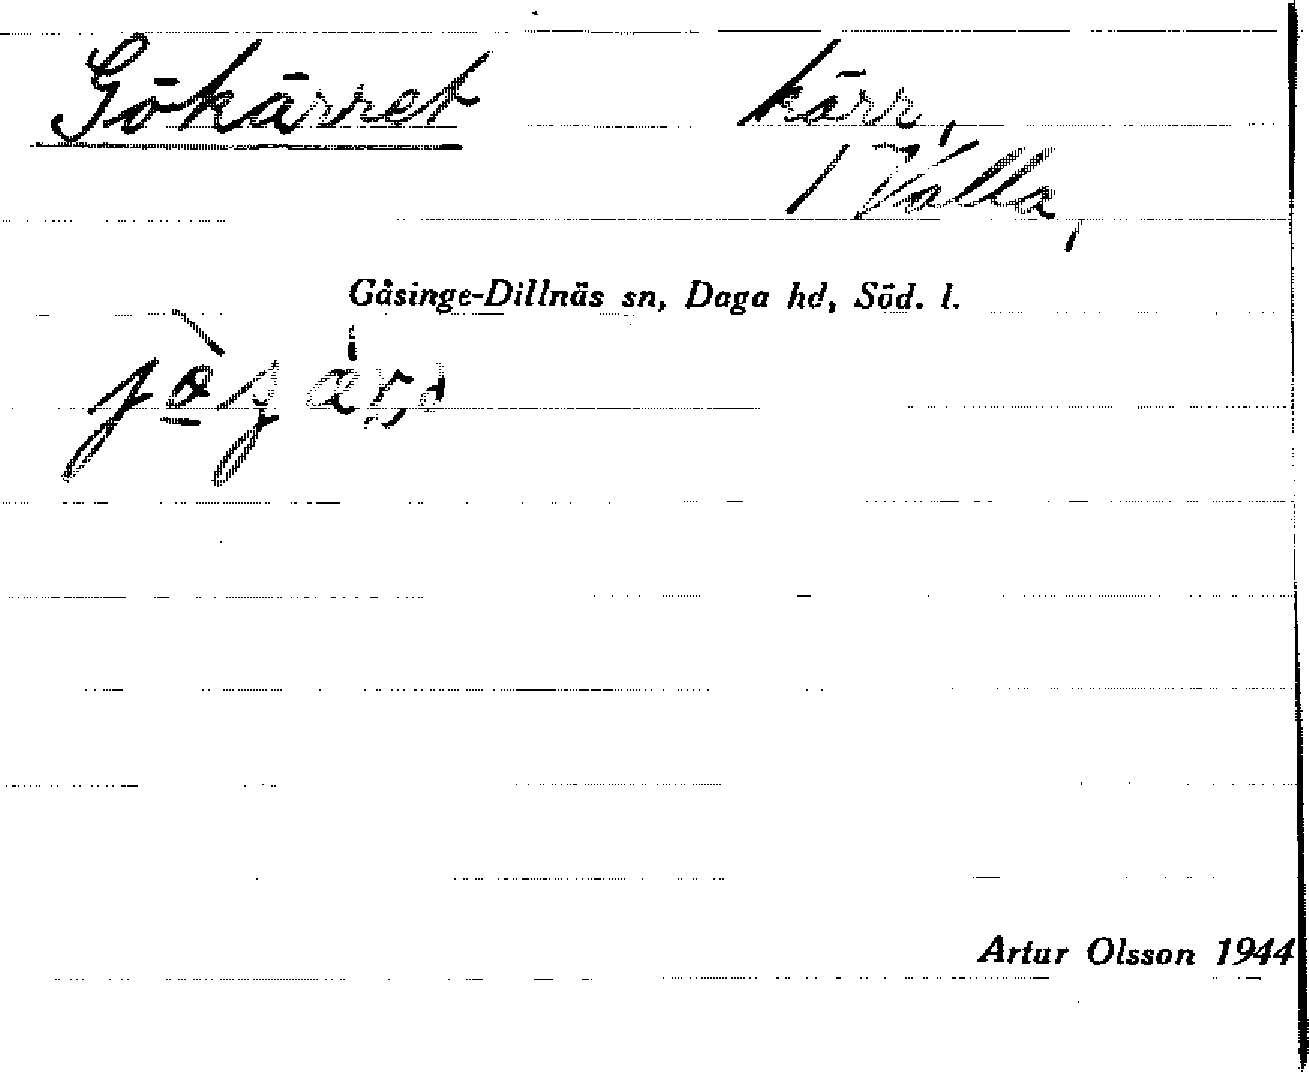 Gökärret kärr,
1 Valla,
Gåsinge-Dillnäs sn, Daga hd, Söd. l.
Artur Olsson 1944